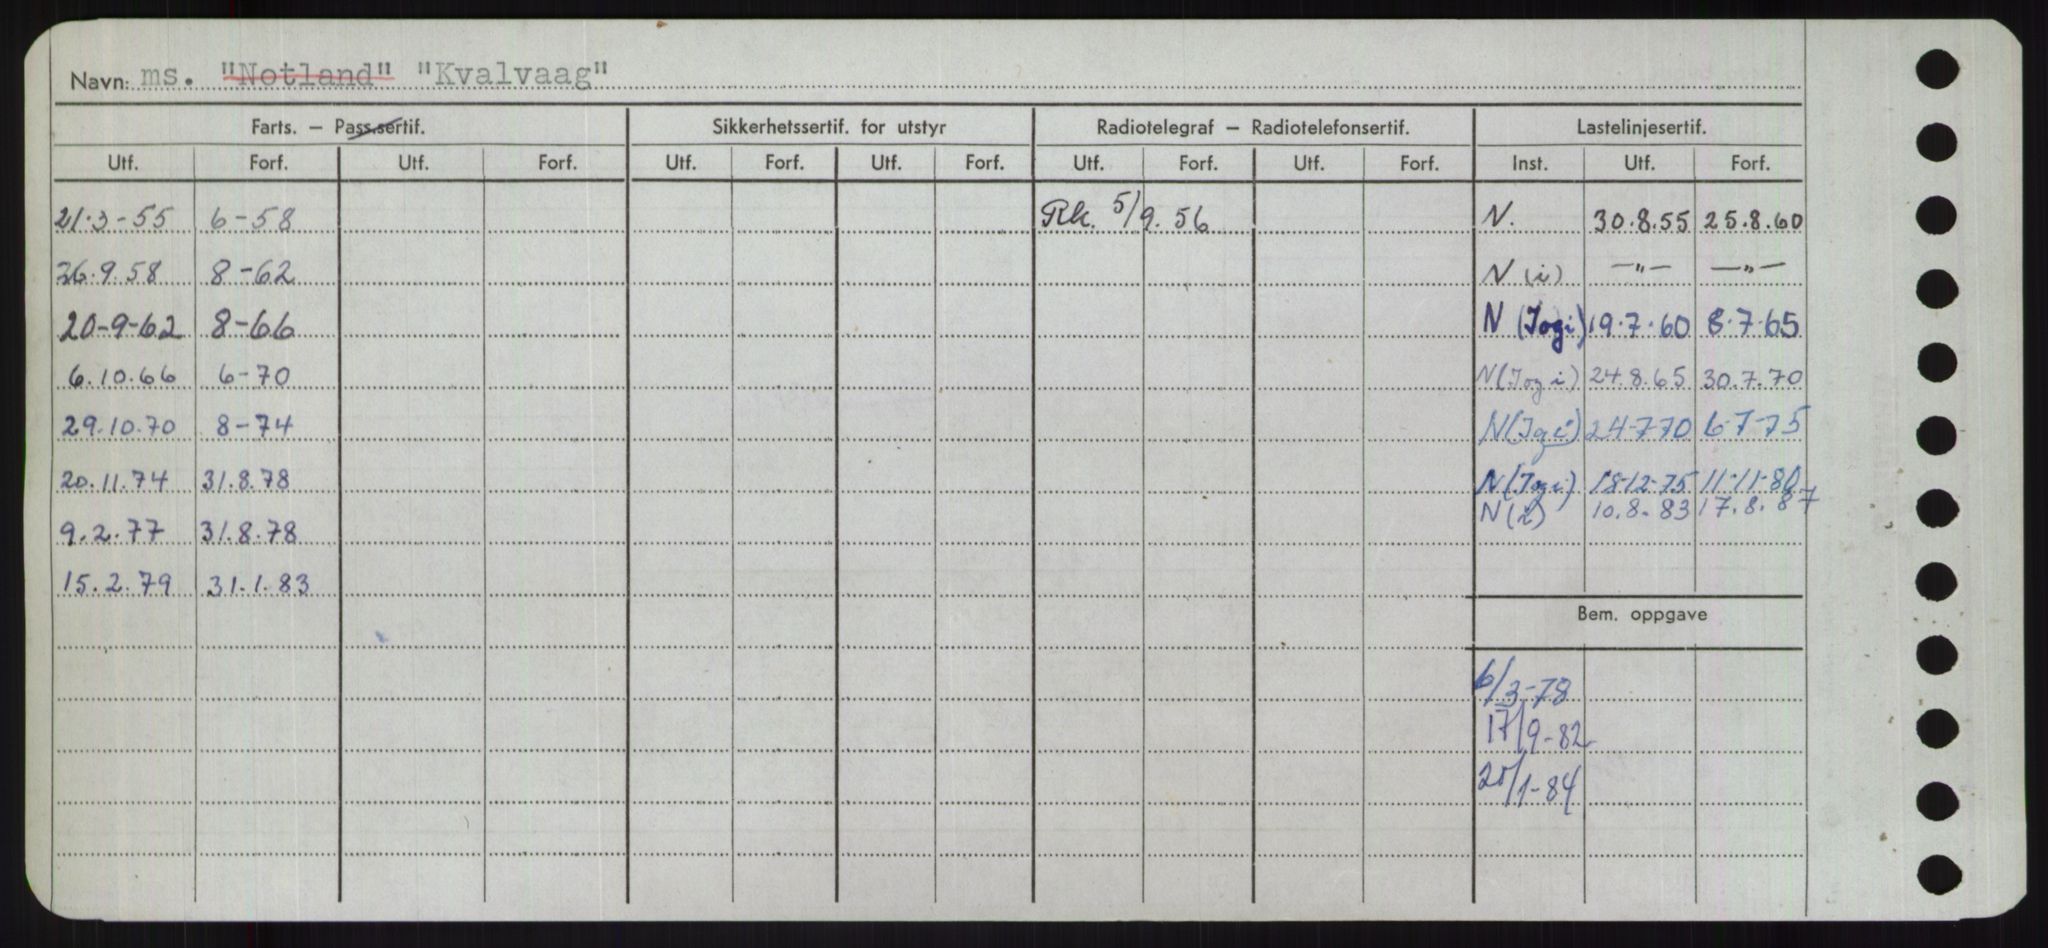 Navn: ms. "Notland" "Kvalvaag"
Farts. – Pass.sertif. Sikkerhetssertif. for utstyr Radiotelegraf – Radiotelefonsertif. Lastelinjesertif.
Utf. Forf. Utf. Forf. Utf. Forf. Utf. Forf. Utf. Forf. Utf. Forf. Inst. Utf. Forf.
21.3-55 6-58 Rk. 5/9.56 N. 30.8.55 25.8.60
26.9.58 8-62 N (i) —"— —"—
20-9-62 8-66 N (Iogi) 19.7.60 8.7.65
6.10.66 6-70 N(Iogi) 24.8.65 30.7.70
29.10.70 8-74 N(Iogi) 24-7-70 6-7-75
20.11.74 31.8.78 N(Iogi) 18-12-75 11-11-80
N(i) 10.8.83 17.8.87
9.2.77 31.8.78
15.2.79 31.1.83
Bem. oppgave
6/3-78
17/9-82
/1-84